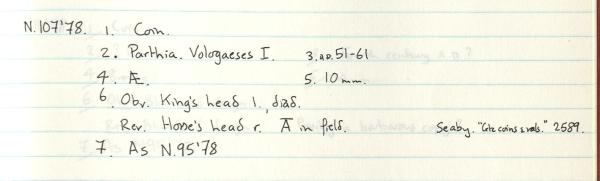 N.107'78. 1. Coin.
2. Parthia. Vologaeses I. 3. A.D. 51-61
4. Æ. 5. 10 mm.
6. Obv. King's head l., diad.
Rev. Horse's head r. A̅ in field. Seaby. "Grk coins & vals." 2589.
7. As N.95'78